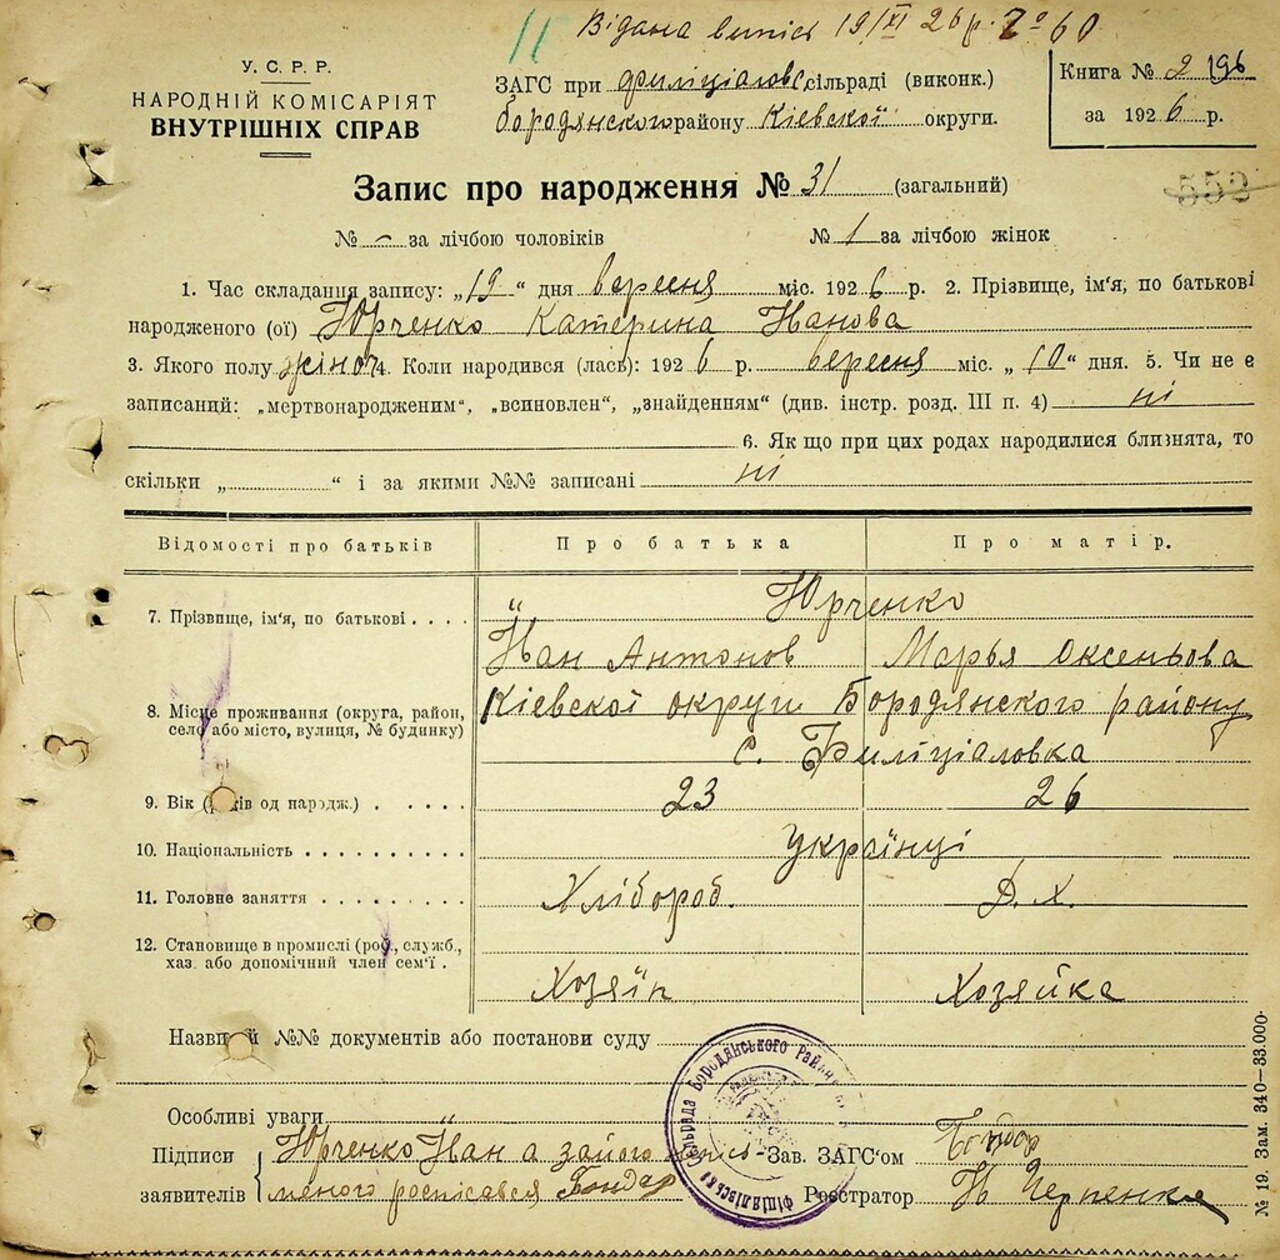 11 Відана випісь 19/XI 26 р. № 60
У. С. Р. Р.
НАРОДНІЙ КОМІСАРІЯТ
ВНУТРІШНІХ СПРАВ
ЗАГС при филіціаловс. сільраді (виконк.)
бородянского району Кіевскої округи.
Книга № 2 196
за 1926 р.
Запис про народження № 31 (загальний)
559
№ – за лічбою чоловіків № 1 за лічбою жінок
1. Час складання запису: „19“ дня вересня міс. 1926 р. 2. Прізвище, ім'я, по батькові
народженого (ої) Юрченко Катерина Іванова
3. Якого полу жіноч 4. Коли народився (лась): 1926 р. вересня міс. „10“ дня. 5. Чи не є
записаний: „мертвонародженим“, „всиновлен“, „знайденням“ (див. інстр. розд. III п. 4) ні
6. Як що при цих родах народилися близнята, то
скільки „ “ і за якими №№ записані ні
Відомості про батьків Про батька Про матір.
7. Прізвище, ім'я, по батькові . . . . Юрченко
Іван Антонов Марья Оксеньова
8. Місце проживання (округа, район,
село або місто, вулиця, № будинку)
Кіевскої округи Бородянского району
с. Филіціаловка
9. Вік (років од народж.) . . . . . 23 26
10. Національність . . . . . . . . . . Українці
11. Головне заняття . . . . . . . . . Хлібороб. Д. Х.
12. Становище в промислі (роб., служб.,
хаз. або допомічний член сем'ї .
Хозяїн Хозяйка
Назви й №№ документів або постанови суду
Особливі уваги
Підписи
заявителів
Юрченко Іван а за його
меного росписався Бондар
Сільрада Бородянського Район
Зав. ЗАГС'ом Бондар
Реєстратор
№ 19. Зам. 340—33.000